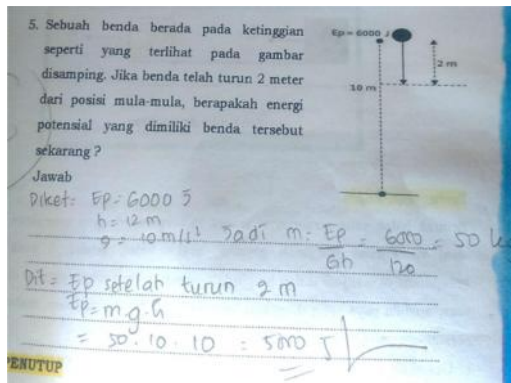 5. Sebuah benda berada pada ketinggian
seperti yang terlihat pada gambar
disamping. Jika benda telah turun 2 meter
dari posisi mula-mula, berapakah energi
potensial yang dimiliki benda tersebut
sekarang ?
Ep = 6000 J
2 m
10 m
Jawab
Diket: Ep = 6000 J
h = 12 m
g = 10 m/s² Jadi m = Ep/Gh = 6000/120 = 50
Dit = Ep setelah turun 2 m
Ep = m.g.h
= 50. 10. 10 = 5000 J
PENUTUP